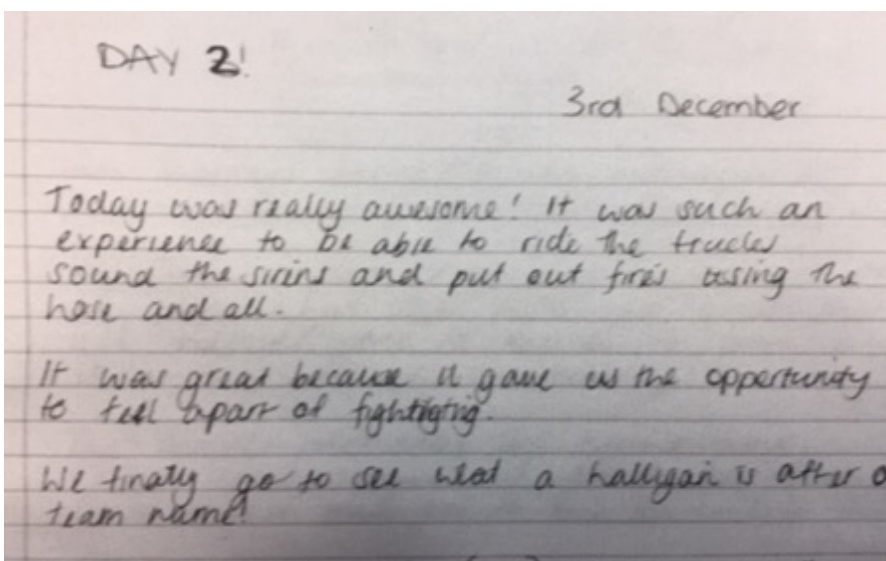 DAY 2!
3rd December
Today was really awesome! It was such an
experience to be able to ride the trucks
sound the sirins and put out fires using the
hose and all.
It was great because it gave us the oppertunity
to feel apart of
We finally go to see what a halligan is after
team name!